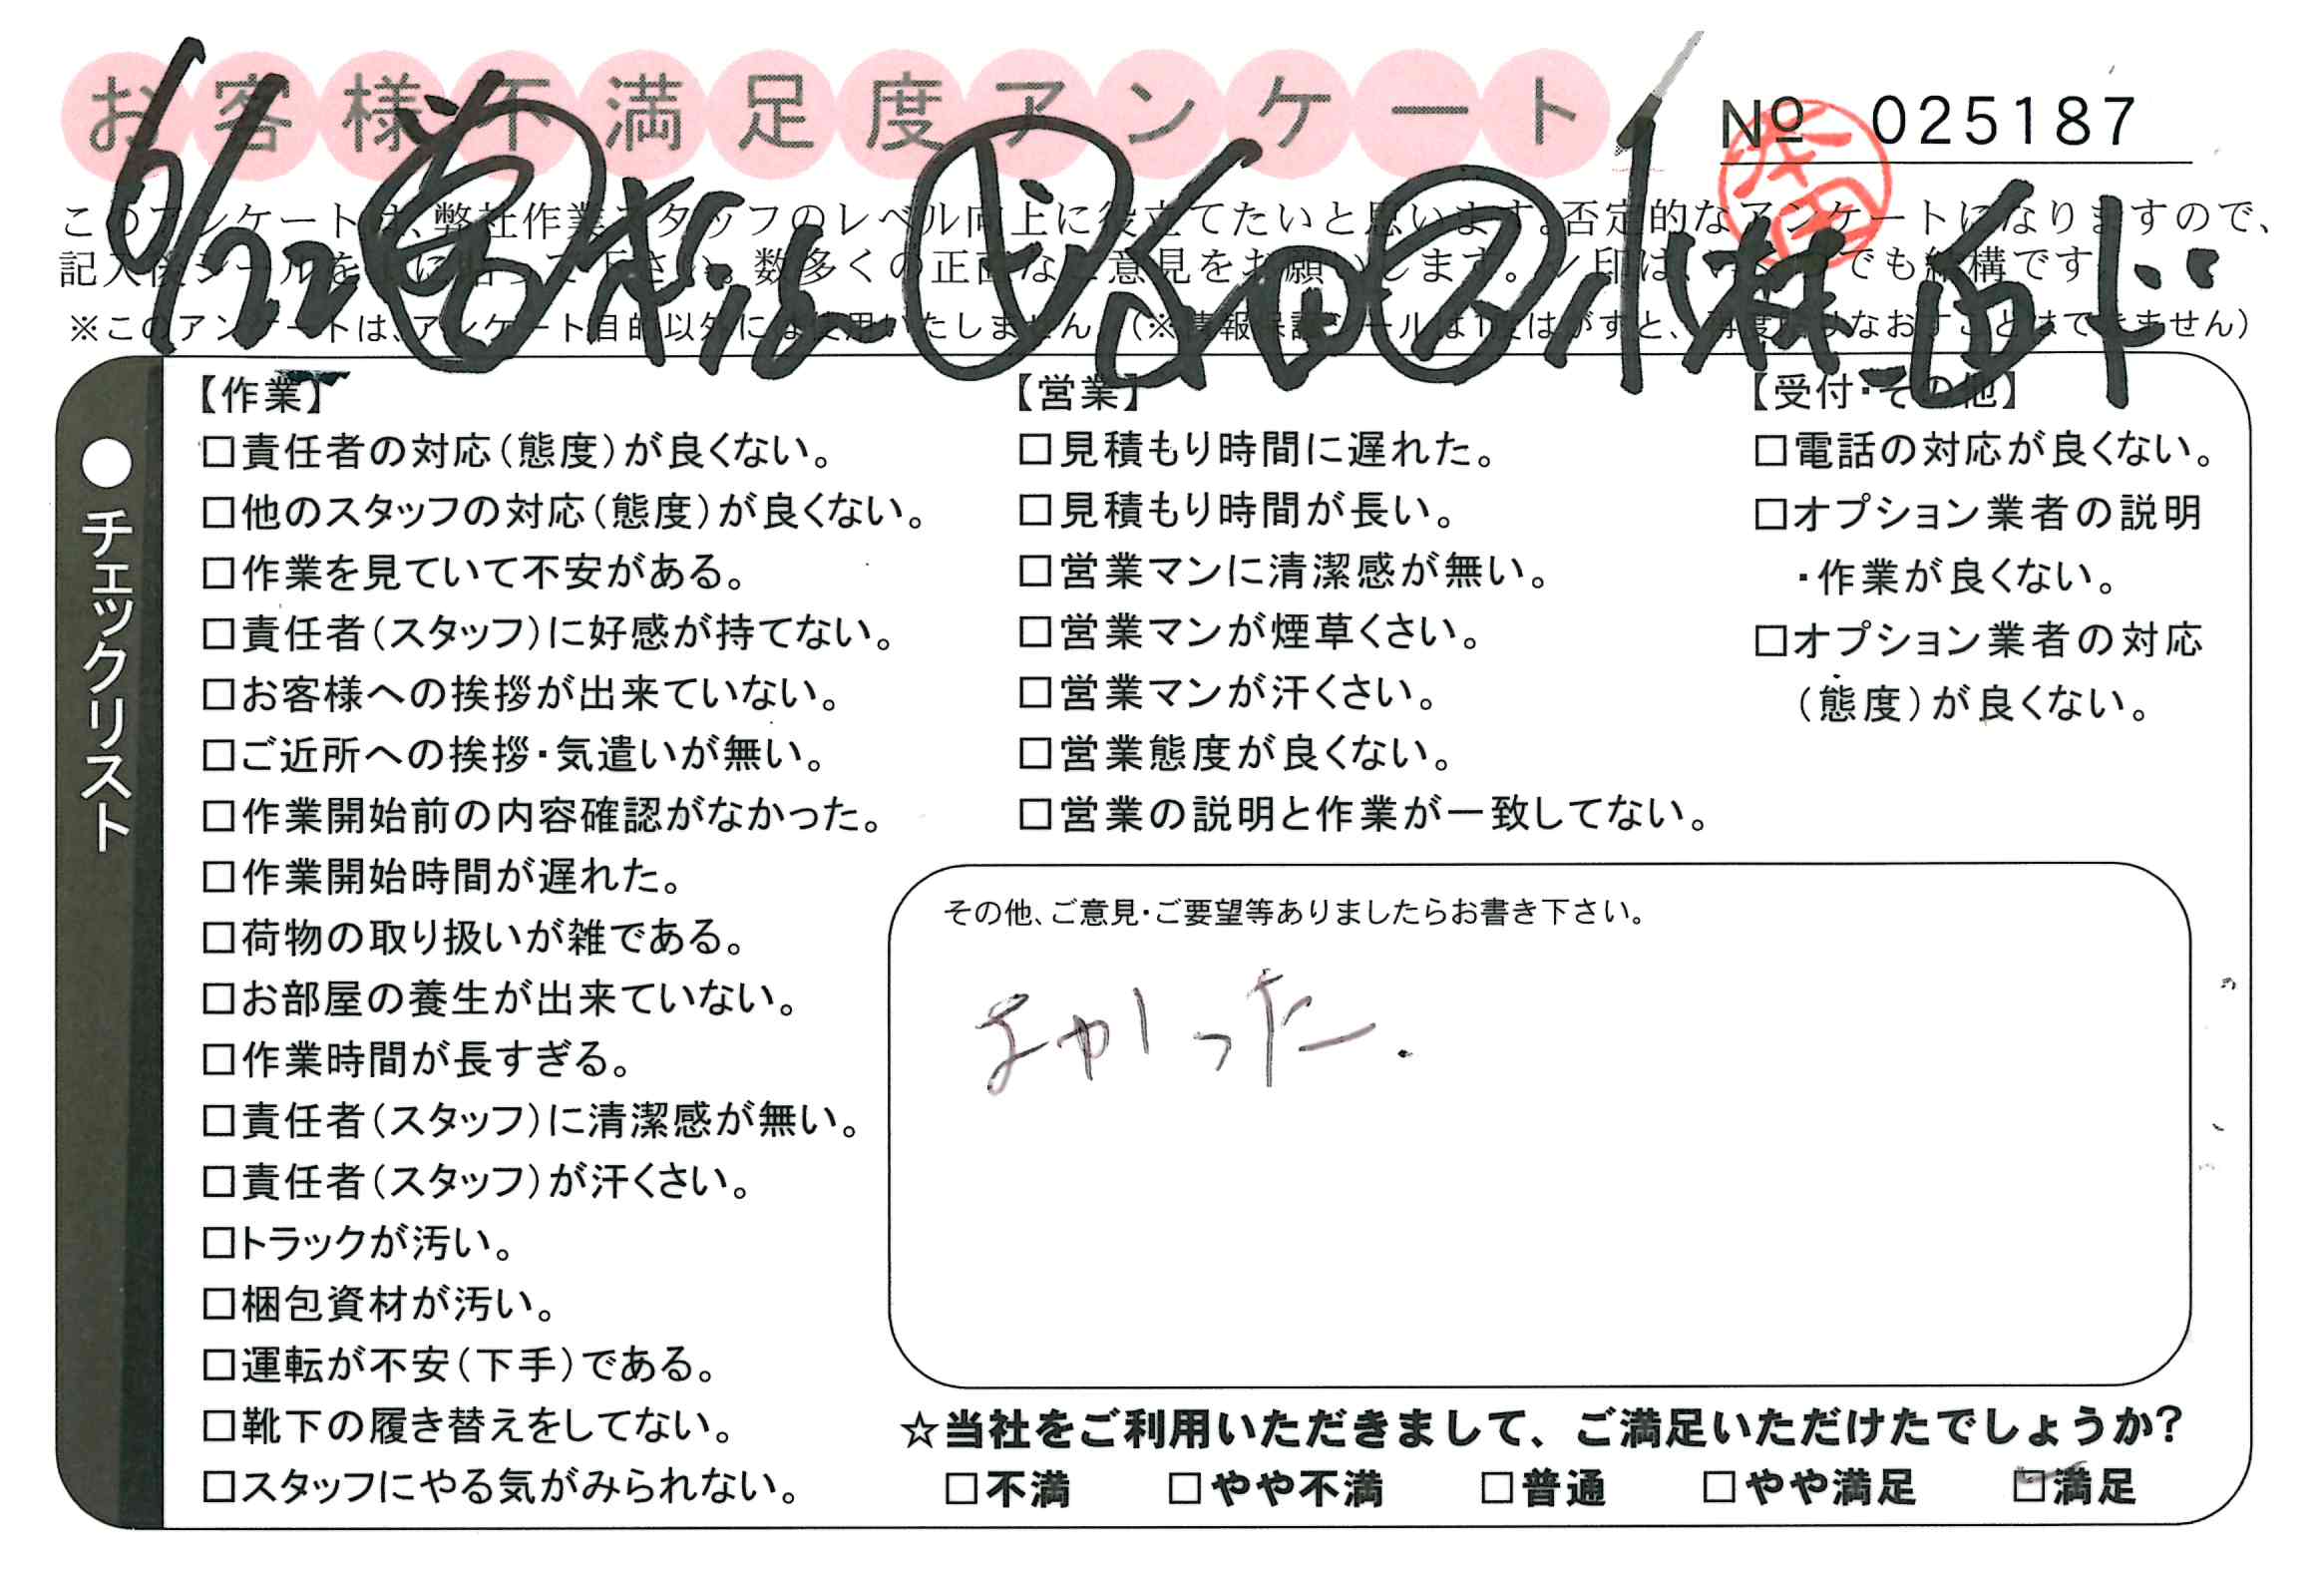 お客様不満足度アンケート
№ 025187
このアンケートは、弊社作業スタッフのレベル向上に役立てたいと思います。否定的なアンケートになりますので、
※このアンケートは、アンケート目的以外には使用いたしません。
6/22
●チェックリスト
【作業】
□責任者の対応(態度)が良くない。
□他のスタッフの対応(態度)が良くない。
□作業を見ていて不安がある。
□責任者(スタッフ)に好感が持てない。
□お客様への挨拶が出来ていない。
□ご近所への挨拶・気遣いが無い。
□作業開始前の内容確認がなかった。
□作業開始時間が遅れた。
□荷物の取り扱いが雑である。
□お部屋の養生が出来ていない。
□作業時間が長すぎる。
□責任者(スタッフ)に清潔感が無い。
□責任者(スタッフ)が汗くさい。
□トラックが汚い。
□梱包資材が汚い。
□運転が不安(下手)である。
□靴下の履き替えをしてない。
□スタッフにやる気がみられない。
【営業】
□見積もり時間に遅れた。
□見積もり時間が長い。
□営業マンに清潔感が無い。
□営業マンが煙草くさい。
□営業マンが汗くさい。
□営業態度が良くない。
□営業の説明と作業が一致してない。
【受付・その他】
□電話の対応が良くない。
□オプション業者の説明
・作業が良くない。
□オプション業者の対応
(態度)が良くない。
その他、ご意見・ご要望等ありましたらお書き下さい。
よかった.
☆当社をご利用いただきまして、ご満足いただけたでしょうか?
□不満 □やや不満 □普通 □やや満足 ☑満足